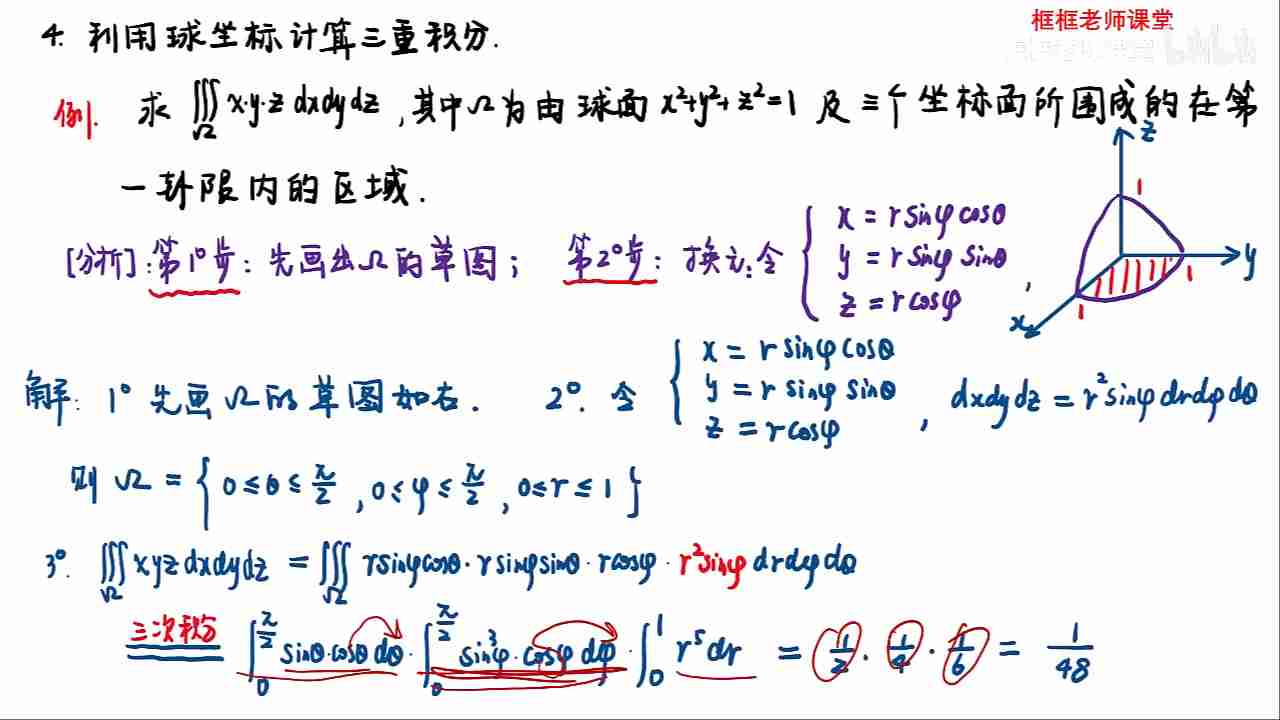 框框老师课堂
4. 利用球坐标计算三重积分.
例. 求 ∭_Ω x·y·z dxdydz , 其中Ω为由球面 x²+y²+z²=1 及三个坐标面所围成的在第
一卦限内的区域.
[分析]: 第1°步: 先画出Ω的草图; 第2°步: 换元: 令 { x = r sinφ cosθ
y = r sinφ sinθ
z = r cosφ ,
z
1
y
1
x
1
解: 1° 先画Ω的草图如右. 2°. 令 { x = r sinφ cosθ
y = r sinφ sinθ
z = r cosφ , dxdydz = r² sinφ dr dφ dθ
则 Ω = { 0 ≤ θ ≤ π/2 , 0 ≤ φ ≤ π/2 , 0 ≤ r ≤ 1 }
3°. ∭_Ω xyz dxdydz = ∭_Ω r sinφ cosθ · r sinφ sinθ · r cosφ · r² sinφ dr dφ dθ
三次积分 ∫_0^{π/2} sinθ·cosθ dθ · ∫_0^{π/2} sin³φ·cosφ dφ · ∫_0^1 r⁵ dr = 1/2 · 1/4 · 1/6 = 1/48